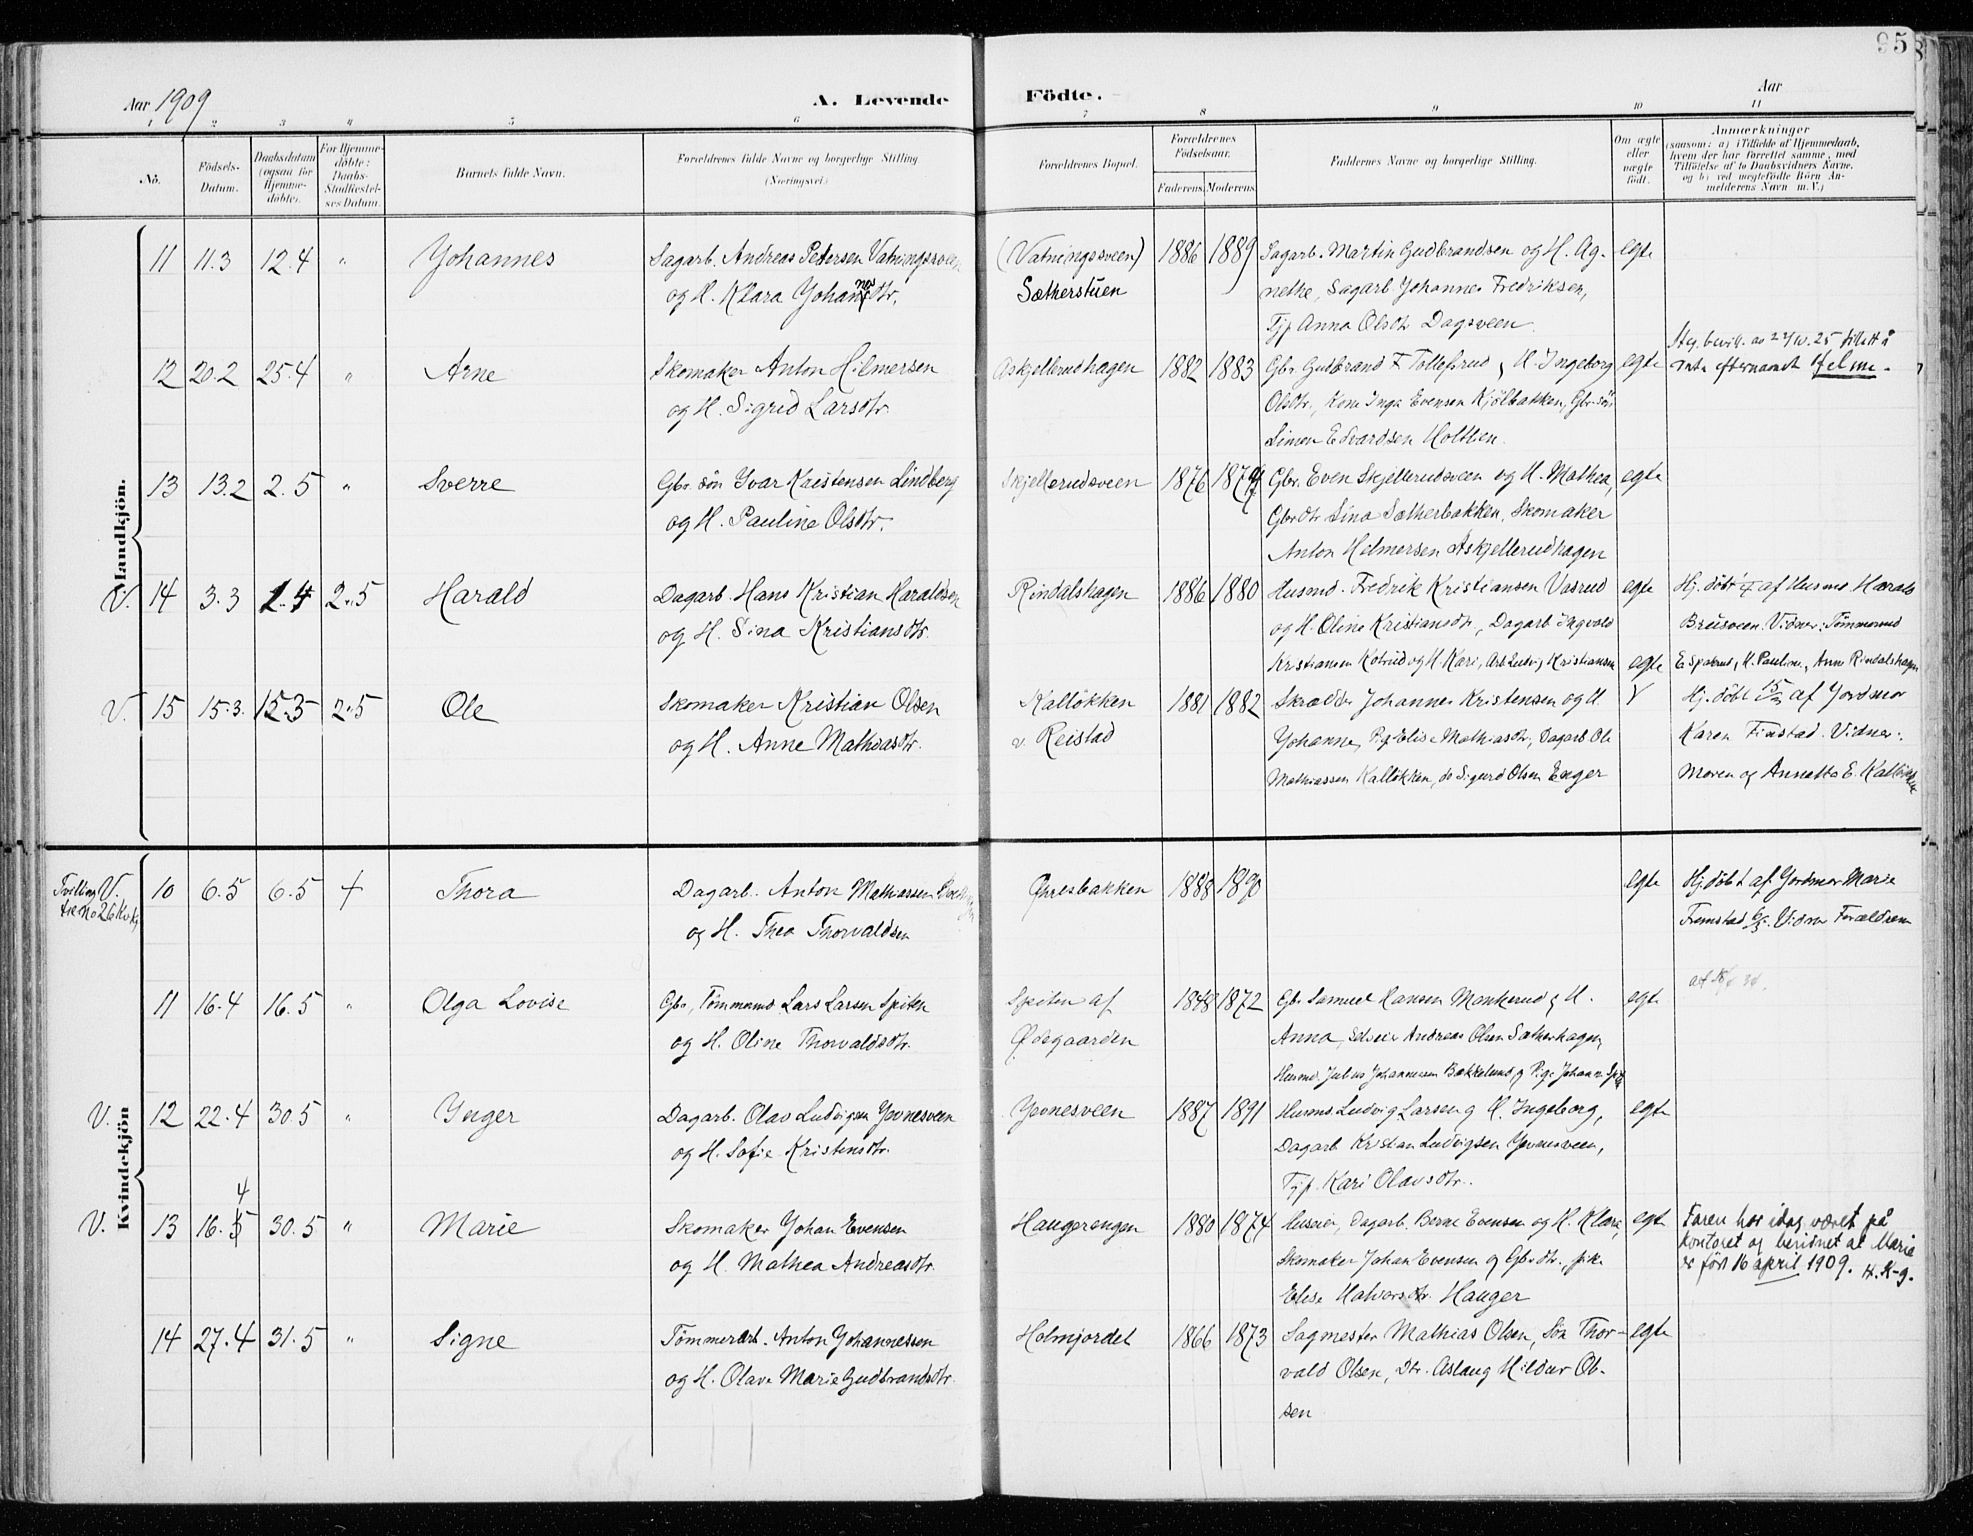 95
Aar 1909
A. Levende Födte.
Aar
1 2 3 4 5 6 7 8 9 10 11
No.
Födsels-Datum.
Daabsdatum (ogsaa for Hjemme-döbte).
For Hjemme-döbte: Daabs-Stadfæstel-ses Datum.
Barnets fulde Navn.
Forældrenes fulde Navne og borgerlige Stilling (Næringsvei.)
Forældrenes Bopæl.
Forældrenes Födselsaar.
Faderens. Moderens.
Faddernes Navne og borgerlige Stilling.
Om ægte eller uægte födt.
Anmærkninger
(saasom: a) i Tilfælde af Hjemmedaab, hvem der har forrettet samme, med Tilföielse af to Daabsvidners Navne, og b) ved uegtefödte Börn An-melderens Navn m.V.)
Mandkjön.
11 11.3 12.4 " Johannes
Sagarb. Andreas Petersen Vatningssveen
og H. Klara Johannesdtr.
(Vatningssveen)
Sætherstuen
1886 1889
Sagarb. Martin Gudbrandsen og H. Ag-
nethe, Sagarb. Johannes Fredriksen,
Tjp. Anna Olsdtr. Dagsveen.
egte
12 20.2 25.4 " Arne
Skomaker Anton Hilmersen
og H. Sigrid Larsdtr.
Askjellerudhagen
1882 1883
Gbr. Gudbrand F. Tollefsrud og H. Ingeborg
Olsdtr., Kone Inga Evensen Kjölbakken, Gbr. sön
Simen Edvardsen Holthen.
egte
25 tillatt å
efternavnet Helme.
13 13.2 2.5 " Sverre
Gbr. sön Ivar Kristensen Lindberg
og H. Pauline Olsdtr.
Skjellerudsveen
1876
Gbr. Even Skjellerudsveen og H. Mathea,
Gbr.dtr Lina Sætherbakken, Skomaker
Anton Helmersen Askjellerudhagen
egte
V. 14 3.3 1.4 2.5 Harald
Dagarb. Hans Kristian Haraldsen
og H. Sina Kristiansdtr.
Rindalshagen
1886 1880
Husmd. Fredrik Kristiansen Vasrud
og H. Oline Kristiansdtr, Dagarb. Ingvald
Kristiansen Kolrud og H. Kari, Arb. Ludvig Kristiansen
egte
egte
Hj. döbt 1/4 af Husmd Harald
Brusveen. Vidner: Tömmermd
E. Spakrud, H. Pauline, Anne Rindalshagen
V. 15 15.3. 15.3 2.5 Ole
Skomaker Kristian Olsen
og H. Anne Mathiasdtr.
Kallökken
v. Reistad
1881 1882
Skrædder Johannes Kristensen og H.
Johanne, Pige Elise Mathiasdtr., Dagarb. Ole
Mathiassen Kallökken, do Sigurd Olsen Enger
Hj. döbt 15/3 af Jordmor
Karen Finstad. Vidner:
Moren og Annette E. Kallökken
Kvindekjön
Tvilling V.
10 6.5 6.5 + Thora
Dagarb. Anton Mathiassen
og H. Thea Thorvaldsen
Øpresbakken
1888 1890
egte
Hj. döbt af Jordmor Marie
Fremstad 6/5. Vidner Forældrene
11 16.4 16.5 " Olga Lovise
Gbr., Tömmermd. Lars Larsen Spiten
og H. Oline Thorvaldsdtr.
Spiten af
Ødegaarden
1848 1872
Gbr. Samuel Hansen Mankerud og H.
Anna, Selveier Andreas Olsen Sætherhagen,
Husmd. Julius Johannesen Bakkelund og Pige Johanne Spiten
egte
V. 12 22.4 30.5 " Inger
Dagarb. Olav Ludvigsen Jevnesveen
og H. Sofie Kristensdtr.
Jevnesveen
1887 1891
Husmd. Ludvig Larsen og H. Ingeborg,
Dagarb. Kristian Ludvigsen Jevnesveen,
Tjp. Kari Olavsdtr.
egte
4
V. 13 16.5 30.5 " Marie
Skomaker Johan Evensen
og H. Mathea Andreasdtr.
Haugerengen
1880 1874
Huseier, Dagarb. Berne Evensen og H. Klara,
Skomaker Johan Evensen og Gbr.dtr., pike
Elise Halvorsdtr. Hauger
egte
Faren har idag været på
kontoret og bevidnet at Marie
er født 16 april 1909. H. K-g.
14 27.4 31.5 " Signe
Tömmerarb. Anton Johannessen
og H. Olave Marie Gudbrandsdtr.
Holmjordet
1866 1873
Sagmester Mathias Olsen, Sön Thor-
vald Olsen, Dtr. Aslaug Hildur Ol-
sen
egte